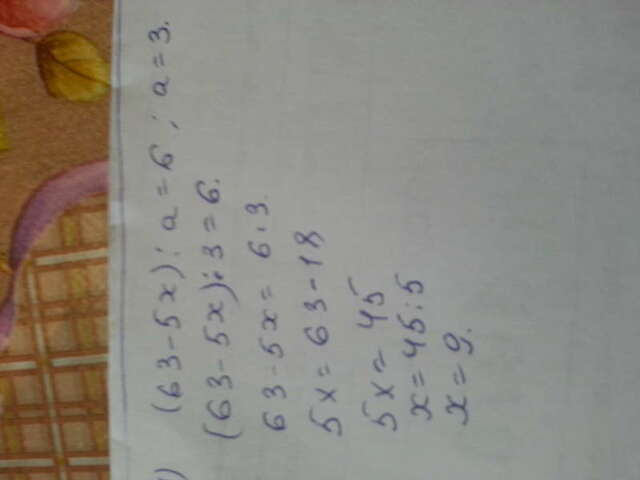 (63-5x):a=6; a=3.
(63-5x):3=6.
63-5x=6·3.
5x=63-18
5x=45
x=45:5
x=9.